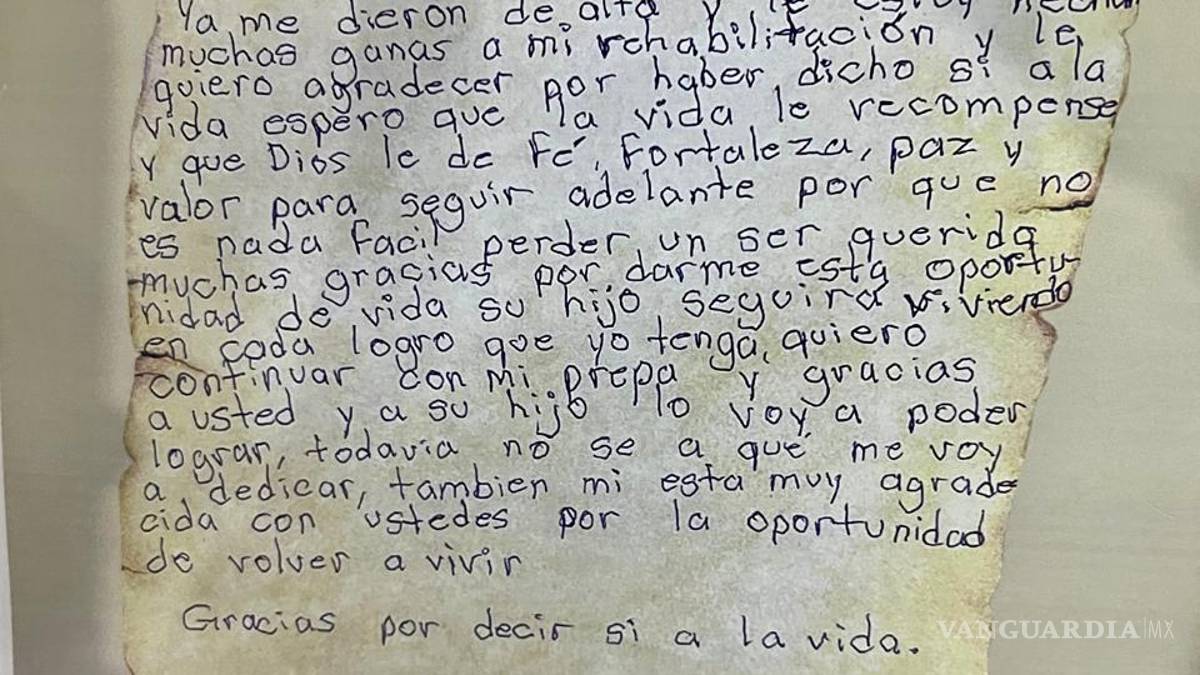 Ya me dieron de alta y le estoy hechan
muchas ganas a mi rehabilitación y le
quiero agradecer por haber dicho si a la
vida espero que la vida le recompense
y que Dios le de Fé, Fortaleza, paz y
valor para seguir adelante por que no
es nada Facil perder un ser querido
muchas gracias por darme esta oportu-
nidad de vida su hijo seguira viviendo
en cada logro que yo tenga, quiero
continuar con mi prepa y gracias
a usted y a su hijo lo voy a poder
lograr, todavia no se a que me voy
a dedicar, tambien mi esta muy agrade
cida con ustedes por la oportunidad
de volver a vivir
Gracias por decir si a la vida.
VANGUARDIA|MX